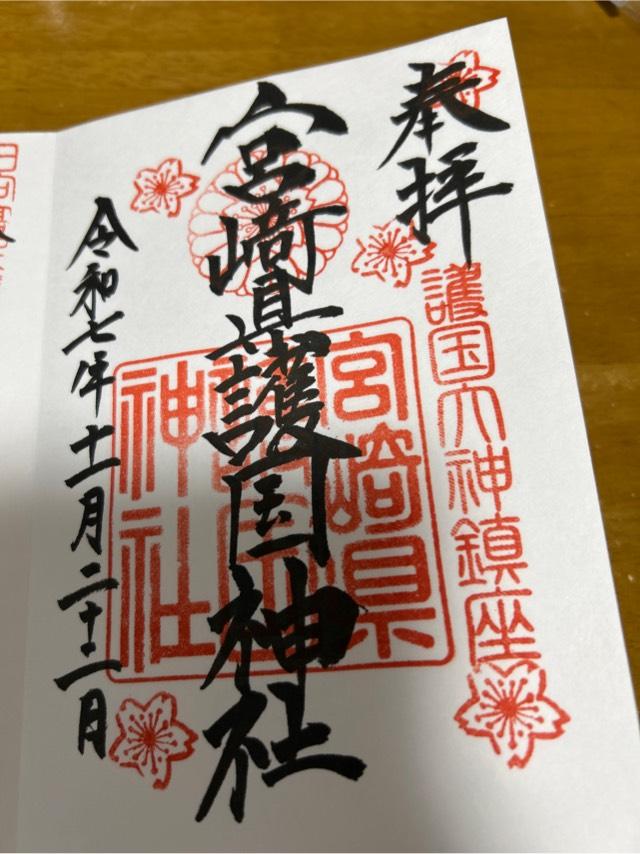 奉拝
護国大神鎮座
宮崎県護国神社
宮崎県
護国
神社
令和七年十一月二十二日